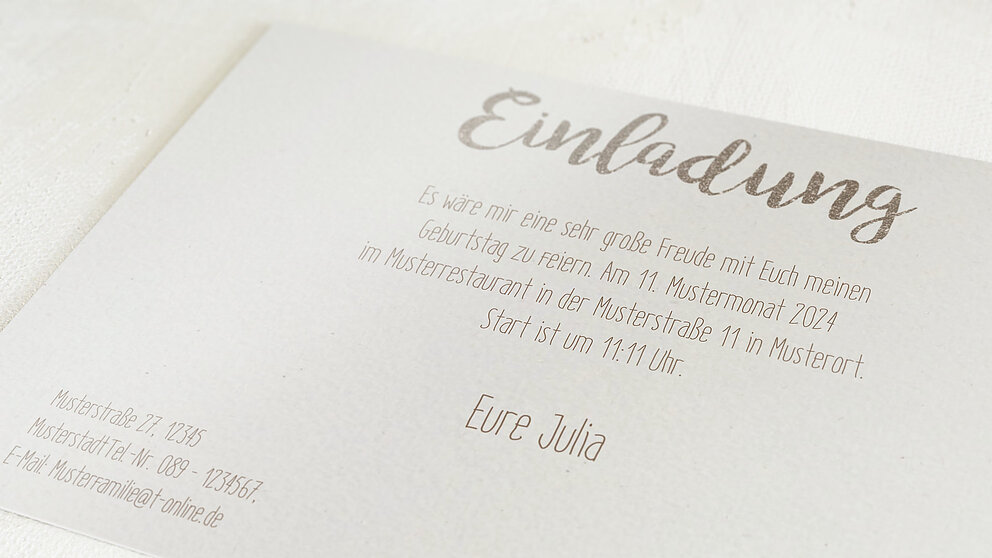 Einladung
Es wäre mir eine sehr große Freude mit Euch meinen
Geburtstag zu feiern. Am 11. Mustermonat 2024
im Musterrestaurant in der Musterstraße 11 in Musterort.
Start ist um 11:11 Uhr.
Eure Julia
Musterstraße 27, 12345
MusterstadtTel.-Nr. 089 - 1234567,
E-Mail: Musterfamilie@t-online.de